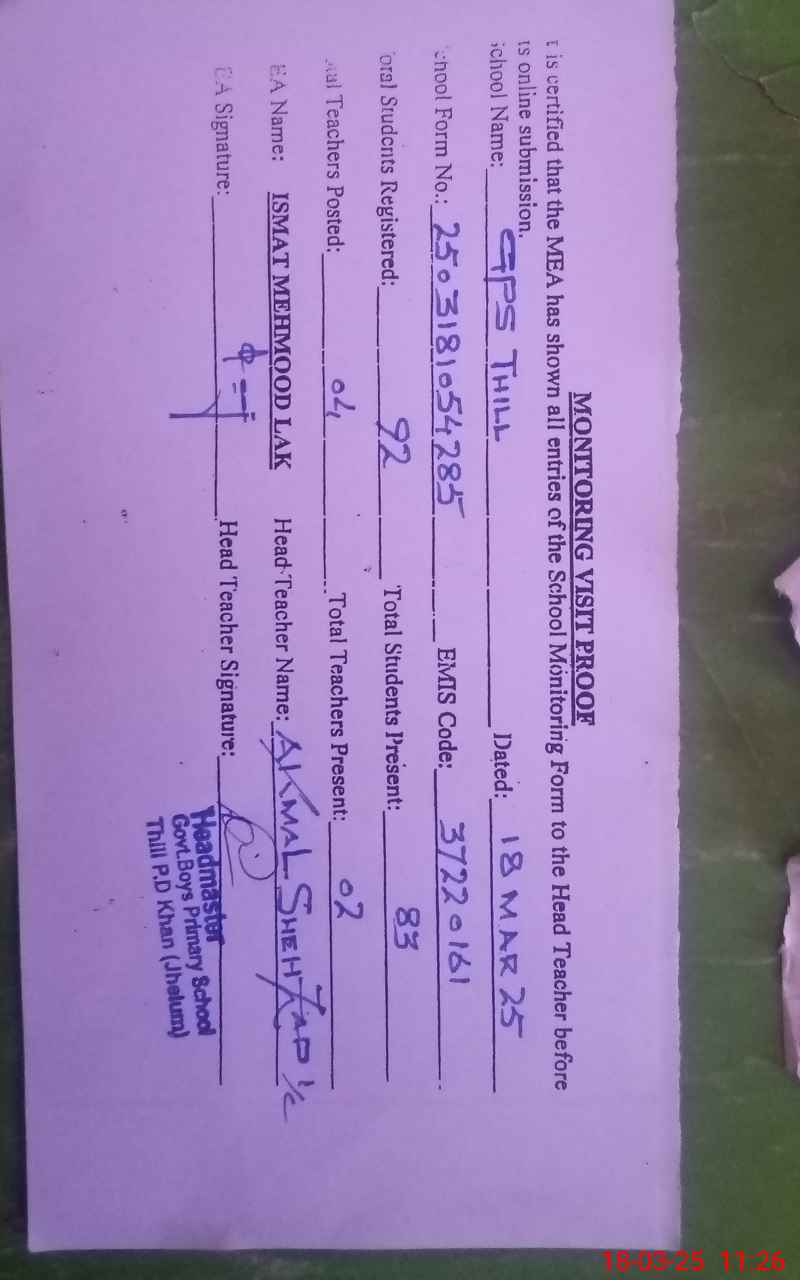 MONITORING VISIT PROOF
t is certified that the MEA has shown all entries of the School Monitoring Form to the Head Teacher before
ts online submission.
ichool Name: GPS THILL Dated: 18 MAR 25
chool Form No.: 2503181054285 EMIS Code: 37220161
otal Students Registered: 92 Total Students Present: 83
tal Teachers Posted: 04 Total Teachers Present: 02
EA Name: ISMAT MEHMOOD LAK Head Teacher Name: AKMAL SHEHZAD i/c
EA Signature: Head Teacher Signature:
Headmaster
Govt.Boys Primary School
Thill P.D Khan (Jhelum)
18-03-25 11:26